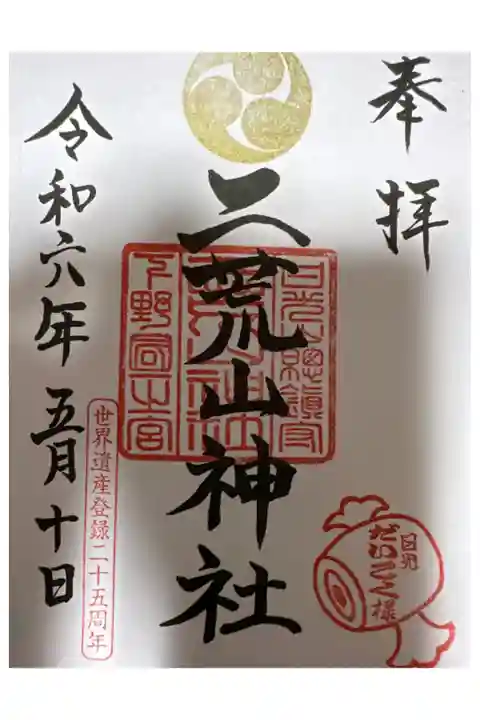 奉拝
二荒山神社
日光総鎮守
下野国一之宮
日光
だいこく様
令和六年五月十日
世界遺産登録二十五周年